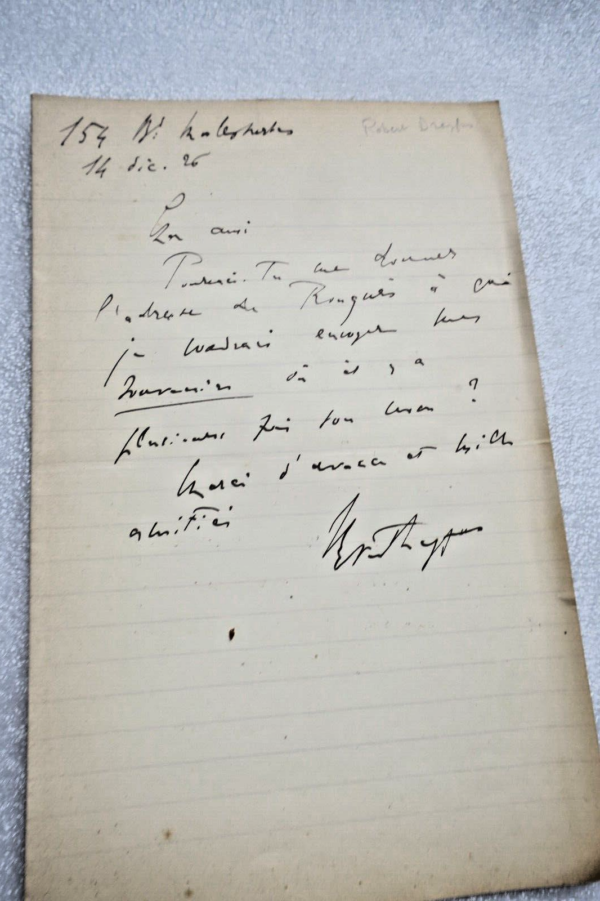 154 Bd Malesherbes
Robert Dreyfus
14 déc. 26
Mon ami
Pourrais-Tu me donner
l'adresse de Rouquès à qui
je voudrais envoyer mes
Souvenirs où il y a
plusieurs fois son nom ?
Merci d'avance et mille
amitiés
Robert Dreyfus